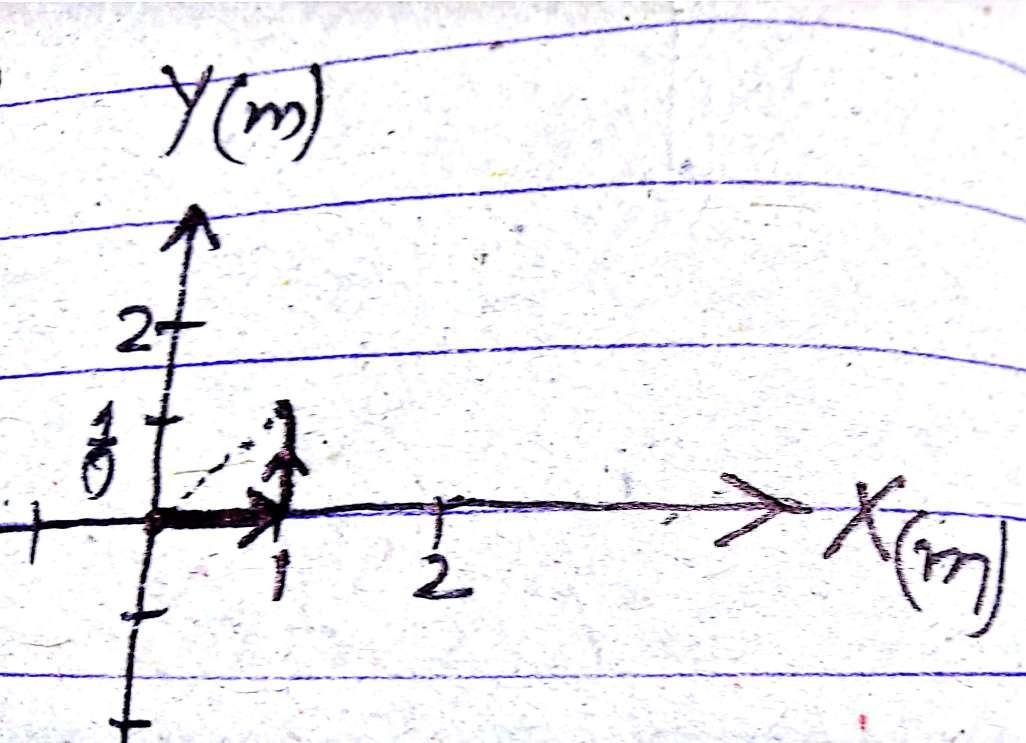 Y(m)
2
1
0
1
2
X(m)